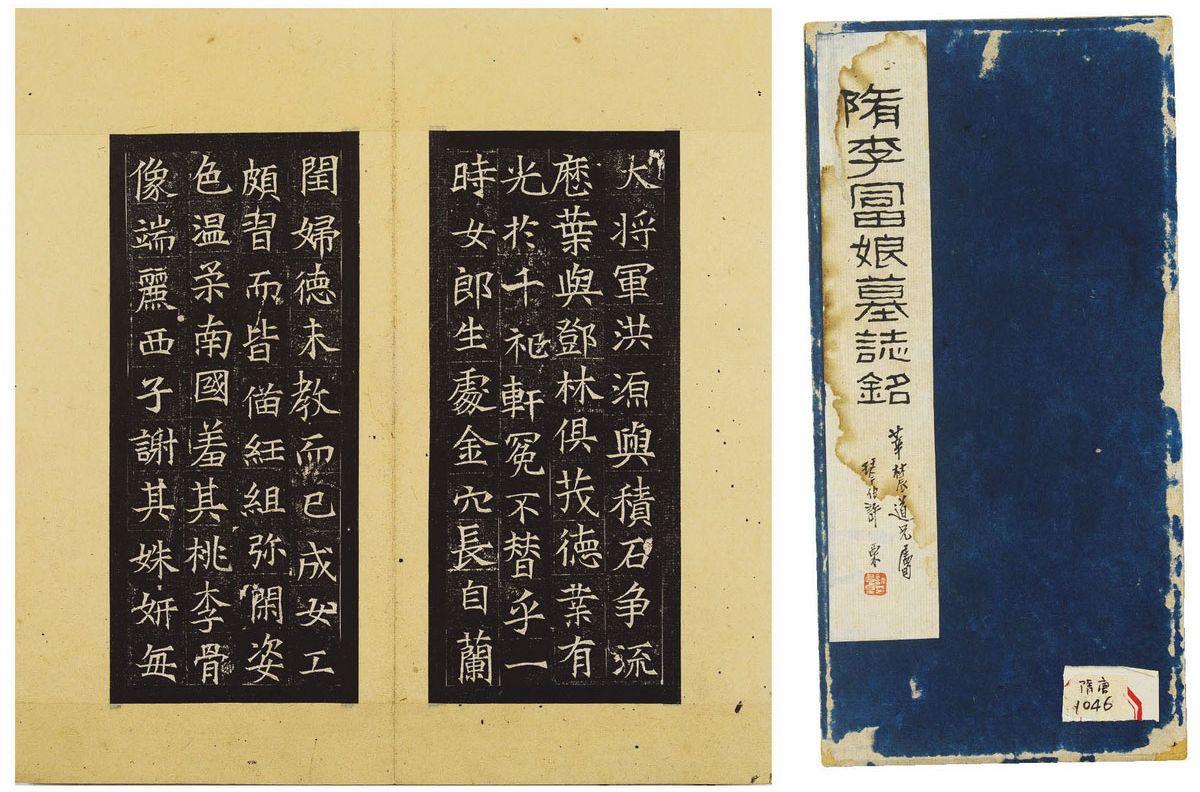 大将軍洪源與積石争流
歴葉與鄧林俱茂德業有
光於千祀軒冕不替乎一
時女郎生處金穴長自蘭
閨婦德未教而已成女工
頗習而皆俻紝組弥閑姿
色温柔南國羞其桃李骨
像端麗西子謝其姝妍無
隋李富娘墓誌銘
道兄屬
琴伯許
隋唐
1046